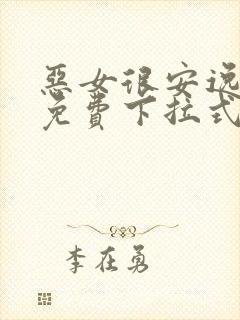 惡女很安逸
免費下拉式
李在勇